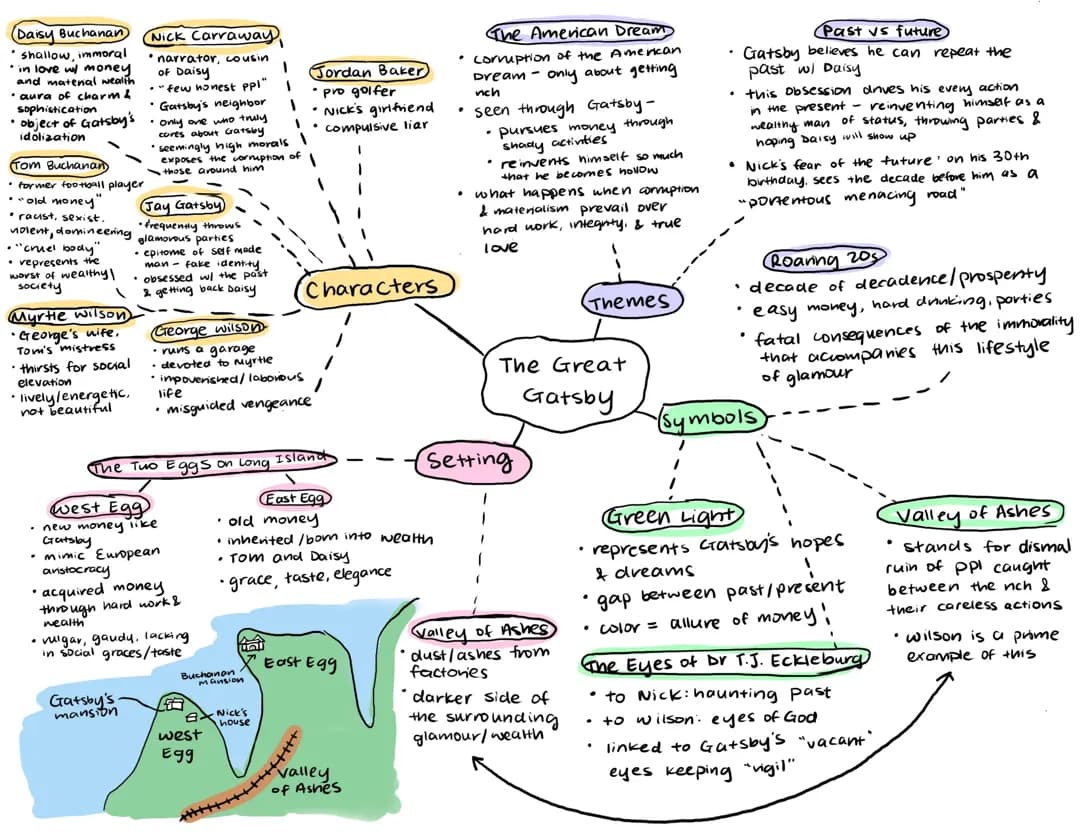 Daisy Buchanan
• shallow, immoral
• in love w/ money
and material wealth
• aura of charm &
sophistication
• object of Gatsby's
idolization
Nick Carraway
• narrator, cousin
of Daisy
• "few honest ppl"
• Gatsby's neighbor
• only one who truly
cares about Gatsby
• seemingly high morals
exposes the corruption of
those around him
Jordan Baker
• pro golfer
• Nick's girlfriend
• compulsive liar
Tom Buchanan
• former football player
• "old money"
• racist, sexist,
violent, domineering
• "cruel body"
• represents the
worst of wealthy
society
Jay Gatsby
• frequently throws
glamorous parties
• epitome of self made
man - fake identity
• obsessed w/ the past
& getting back Daisy
Myrtle Wilson
• George's wife,
Tom's mistress
• thirsts for social
elevation
• lively/energetic,
not beautiful
George Wilson
• runs a garage
• devoted to Myrtle
• inpoverished/laborious
life
• misguided vengeance
Characters
The American Dream
• corruption of the American
Dream - only about getting
rich
• seen through Gatsby -
• pursues money through
shady activities
• reinvents himself so much
that he becomes hollow
• what happens when corruption
& materialism prevail over
hard work, integrity, & true
love
Past vs future
• Gatsby believes he can repeat the
past w/ Daisy
• this obsession drives his every action
in the present - reinventing himself as a
wealthy man of status, throwing parties &
hoping Daisy will show up
• Nick's fear of the future: on his 30th
birthday, sees the decade before him as a
"portentous menacing road"
Themes
Roaring 20s
• decade of decadence/prosperity
• easy money, hard drinking, parties
• fatal consequences of the immorality
that accompanies this lifestyle
of glamour
The Great
Gatsby
Symbols
Setting
The Two Eggs on Long Island
West Egg
• new money like
Gatsby
• mimic European
aristocracy
• acquired money
through hard work &
wealth
• vulgar, gaudy, lacking
in social graces/taste
East Egg
• old money
• inherited/born into wealth
• Tom and Daisy
• grace, taste, elegance
Valley of Ashes
• dust/ashes from
factories
• darker side of
the surrounding
glamour/wealth
Green Light
• represents Gatsby's hopes
& dreams
• gap between past/present
• color = allure of money
The Eyes of Dr T.J. Eckleburg
• to Nick: haunting past
• to Wilson: eyes of God
• linked to Gatsby's "vacant"
eyes keeping "vigil"
Valley of Ashes
• stands for dismal
ruin of ppl caught
between the rich &
their careless actions
• Wilson is a prime
example of this
Buchanan
mansion
East Egg
Gatsby's
mansion
Nick's
house
West
Egg
Valley
of Ashes